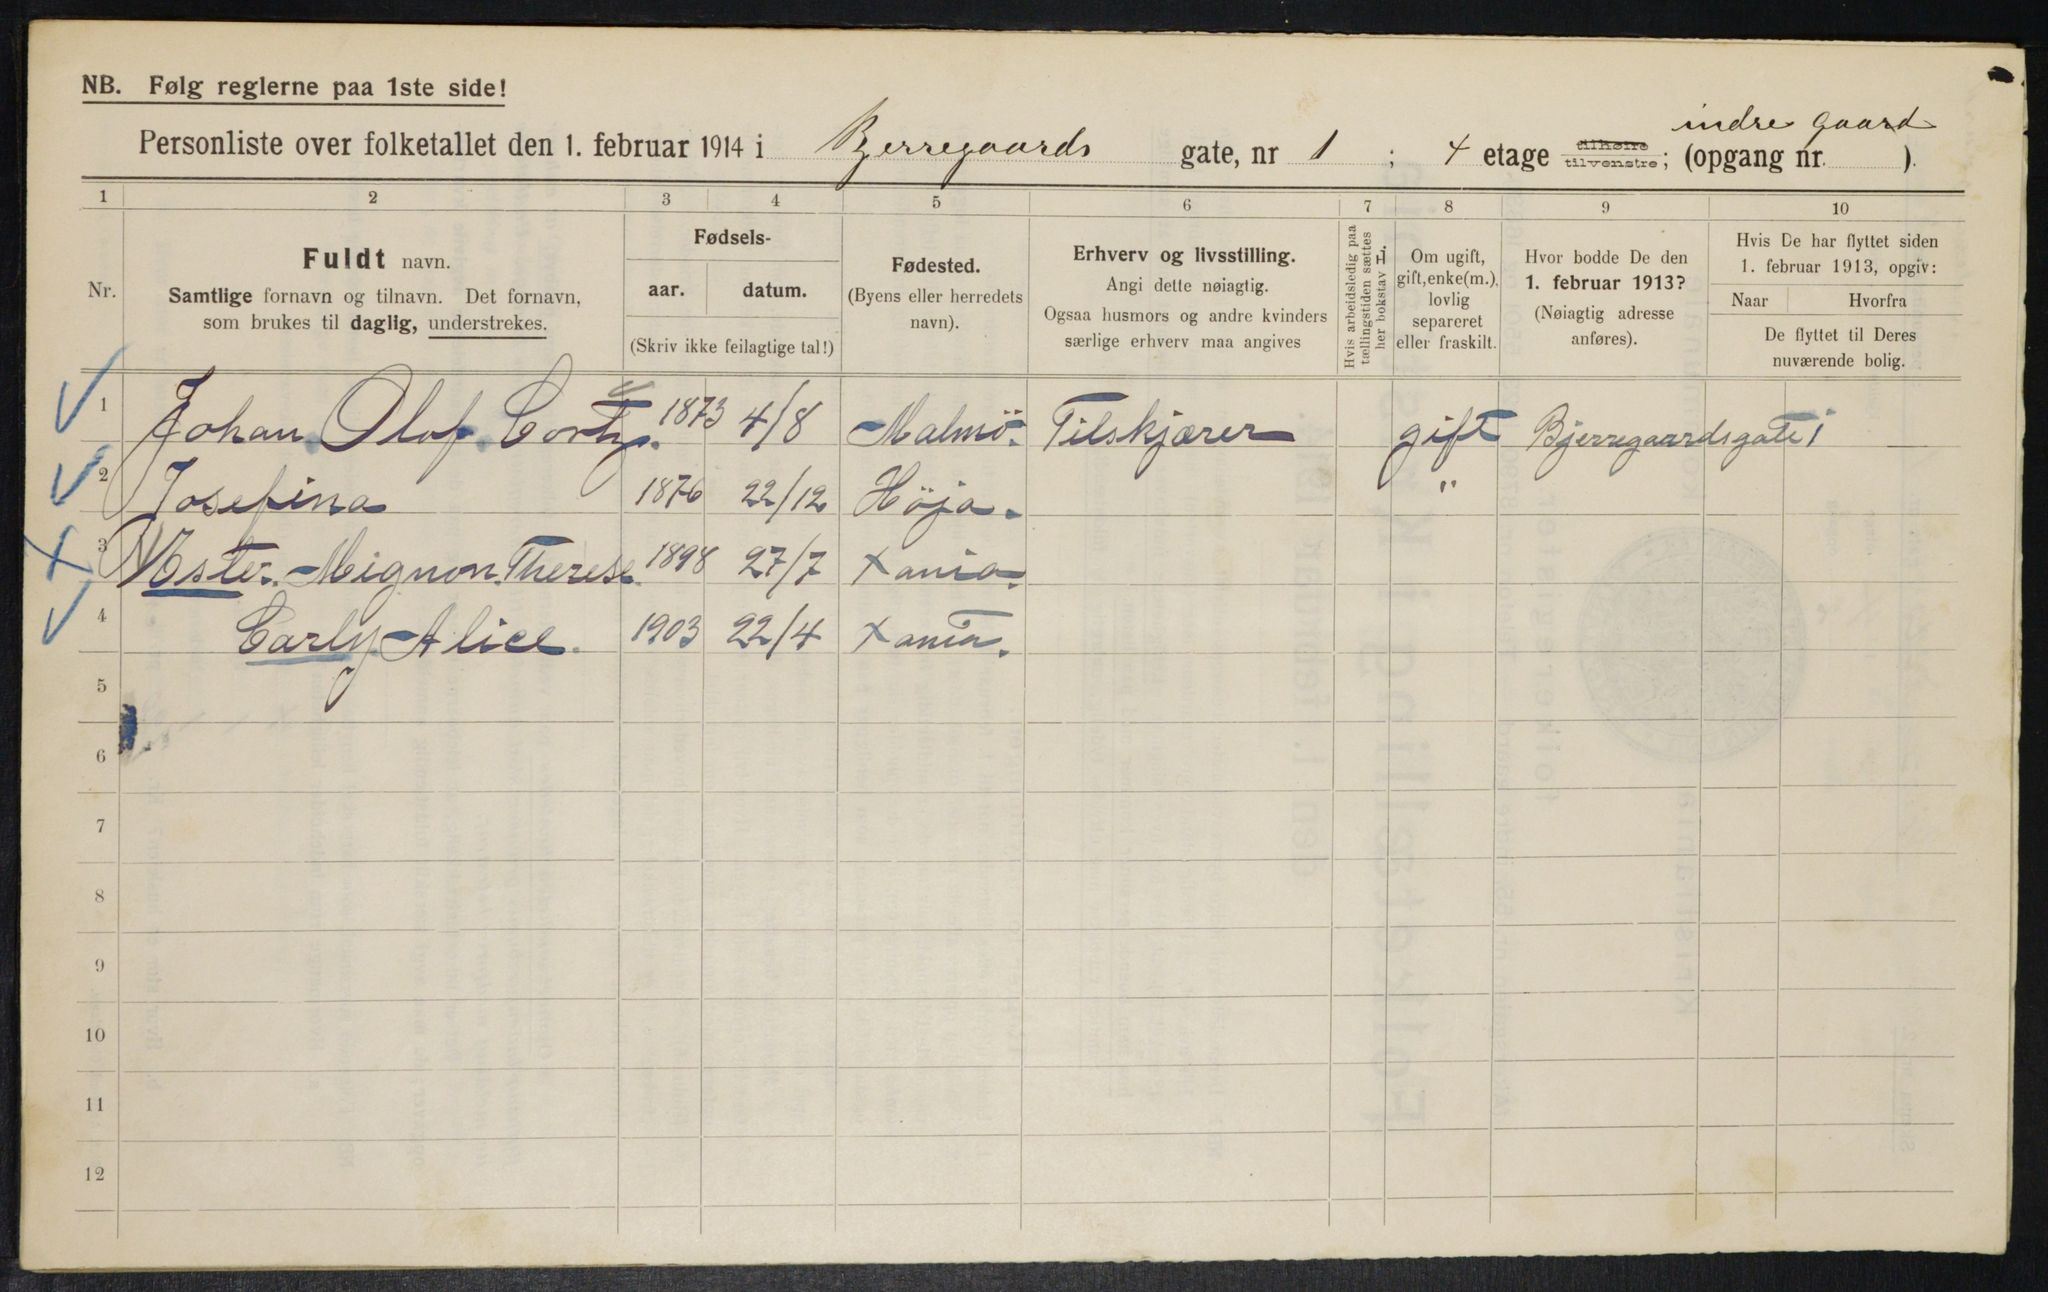 NB. Følg reglerne paa 1ste side!
indre gaard
Personliste over folketallet den 1. februar 1914 i Bjerregaards gate, nr 1 ; 4 etage tilhøire tilvenstre; (opgang nr. ).
1 2 3 4 5 6 7 8 9 10
Nr.
Fuldt navn.
Samtlige fornavn og tilnavn. Det fornavn,
som brukes til daglig, understrekes.
Fødsels-
aar. datum.
(Skriv ikke feilagtige tal!)
Fødested.
(Byens eller herredets
navn).
Erhverv og livsstilling.
Angi dette nøiagtig.
Ogsaa husmors og andre kvinders
særlige erhverv maa angives
Hvis arbeidsledig paa
tællingstiden sættes
her bokstav L.
Om ugift,
gift, enke(m.),
lovlig
separeret
eller fraskilt.
Hvor bodde De den
1. februar 1913?
(Nøiagtig adresse
anføres).
Hvis De har flyttet siden
1. februar 1913, opgiv:
Naar Hvorfra
De flyttet til Deres
nuværende bolig.
1 Johan Olof 1873 4/8 Malmö. Tilskjærer gift Bjerregaardsgate 1
2 Josefina 1876 22/12 Höja. "
3 Mignon Therese 1898 27/7 Xania.
4 Carly Alice. 1903 22/4 Xania.
5
6
7
8
9
10
11
12